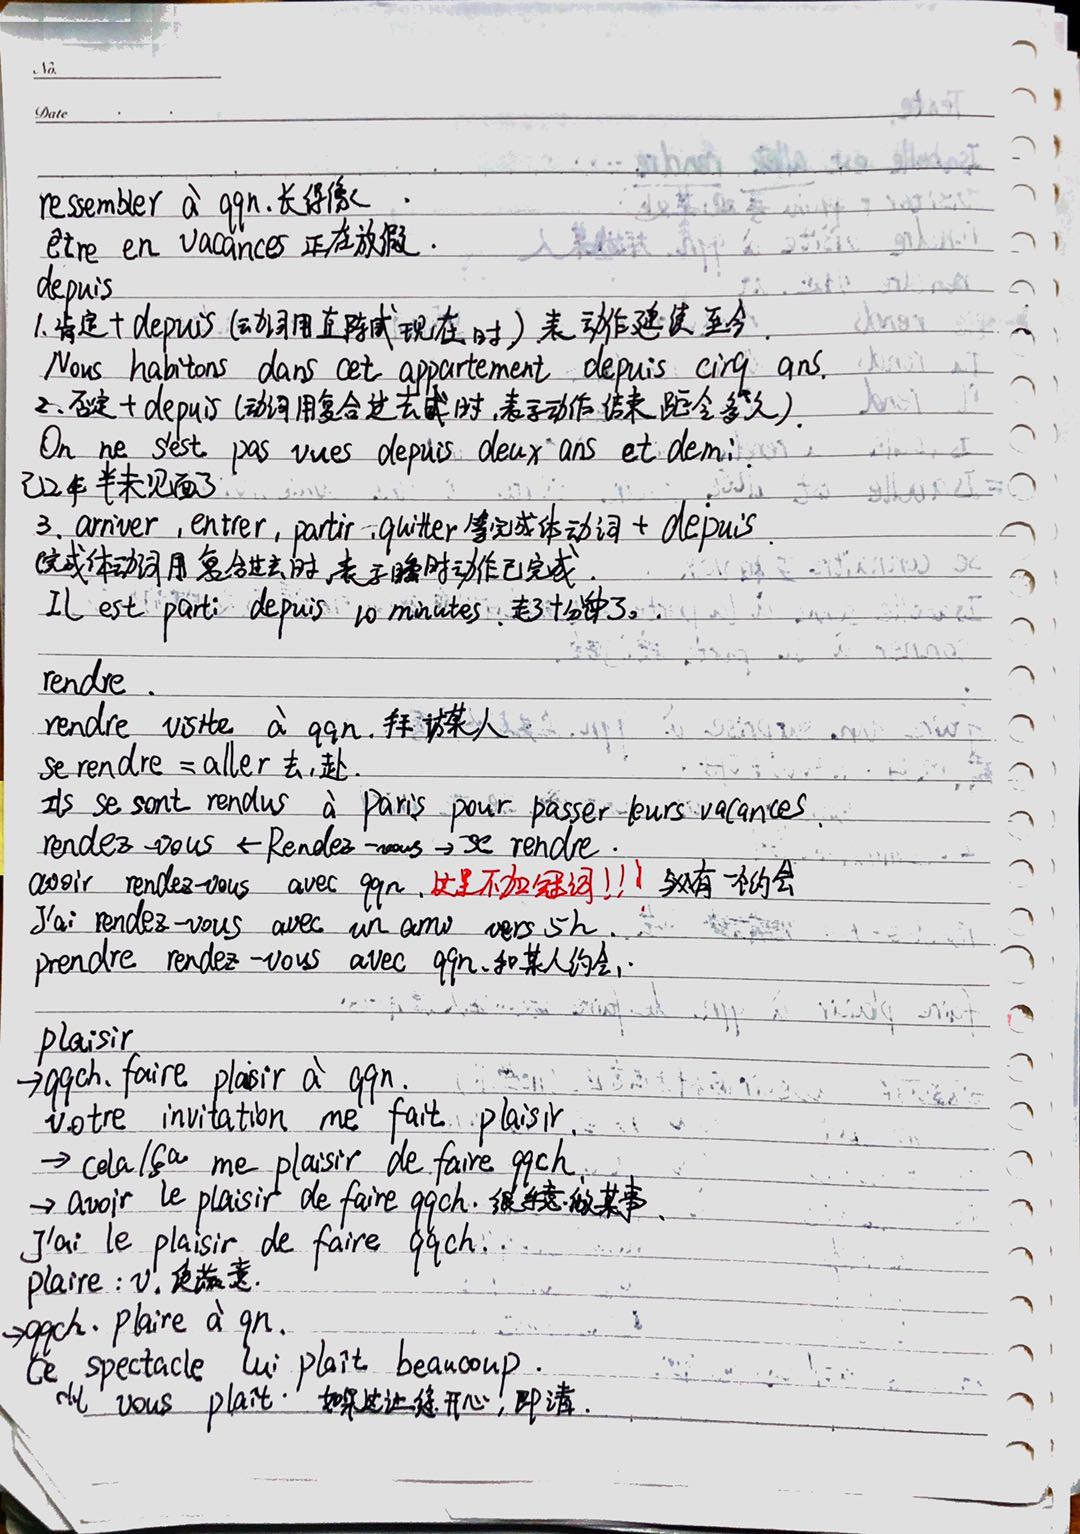 No.
Date
ressembler à qqn. 长得像
être en vacances 正在放假.
depuis
1. 肯定 + depuis (动词用直陈式现在时) 表动作延续至今.
Nous habitons dans cet appartement depuis cinq ans.
2. 否定 + depuis (动词用复合过去式时, 表示动作结束距今多久).
On ne s'est pas vues depuis deux ans et demi.
已2年半未见面了
3. arriver, entrer, partir, quitter 等完成体动词 + depuis
(完成体动词用复合过去时, 表示瞬时动作已完成.
Il est parti depuis 10 minutes. 走了十分钟了。
rendre.
rendre visite à qqn. 拜访某人
se rendre = aller 去,赴.
Ils se sont rendus à Paris pour passer leurs vacances.
rendez-vous ← Rendez-vous → se rendre.
avoir rendez-vous avec qqn. 这里不加冠词!!! 与有一个约会
J'ai rendez-vous avec un ami vers 5h.
prendre rendez-vous avec qqn. 和某人约会,.
plaisir
→ qqch. faire plaisir à qqn.
votre invitation me fait plaisir.
→ cela/ça me plaisir de faire qqch
→ avoir le plaisir de faire qqch. 很乐意做某事.
J'ai le plaisir de faire qqch..
plaire : v. 使满意.
→ qqch. plaire à qn.
Ce spectacle lui plaît beaucoup.
vous plaît. 如果这让您开心, 即请.